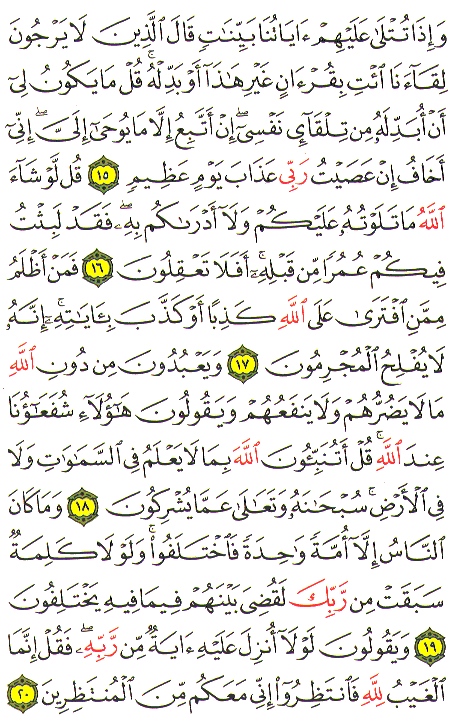 وَإِذَا تُتْلَىٰ عَلَيْهِمْ ءَايَاتُنَا بَيِّنَاتٍ قَالَ ٱلَّذِينَ لَا يَرْجُونَ
لِقَآءَنَا ٱئْتِ بِقُرْءَانٍ غَيْرِ هَٰذَآ أَوْ بَدِّلْهُ ۚ قُلْ مَا يَكُونُ لِىٓ
أَنْ أُبَدِّلَهُۥ مِن تِلْقَآئِ نَفْسِىٓ ۖ إِنْ أَتَّبِعُ إِلَّا مَا يُوحَىٰٓ إِلَىَّ ۖ إِنِّىٓ
أَخَافُ إِنْ عَصَيْتُ رَبِّى عَذَابَ يَوْمٍ عَظِيمٍ ١٥ قُل لَّوْ شَآءَ
ٱللَّهُ مَا تَلَوْتُهُۥ عَلَيْكُمْ وَلَآ أَدْرَىٰكُم بِهِۦ ۖ فَقَدْ لَبِثْتُ
فِيكُمْ عُمُرًا مِّن قَبْلِهِۦٓ ۚ أَفَلَا تَعْقِلُونَ ١٦ فَمَنْ أَظْلَمُ
مِمَّنِ ٱفْتَرَىٰ عَلَى ٱللَّهِ كَذِبًا أَوْ كَذَّبَ بِـَٔايَاتِهِۦٓ ۚ إِنَّهُۥ
لَا يُفْلِحُ ٱلْمُجْرِمُونَ ١٧ وَيَعْبُدُونَ مِن دُونِ ٱللَّهِ
مَا لَا يَضُرُّهُمْ وَلَا يَنفَعُهُمْ وَيَقُولُونَ هَٰٓؤُلَآءِ شُفَعَٰٓؤُنَا
عِندَ ٱللَّهِ ۚ قُلْ أَتُنَبِّـُٔونَ ٱللَّهَ بِمَا لَا يَعْلَمُ فِى ٱلسَّمَٰوَاتِ وَلَا
فِى ٱلْأَرْضِ ۚ سُبْحَٰنَهُۥ وَتَعَٰلَىٰ عَمَّا يُشْرِكُونَ ١٨ وَمَا كَانَ
ٱلنَّاسُ إِلَّآ أُمَّةً وَٰحِدَةً فَٱخْتَلَفُوا۟ ۚ وَلَوْلَا كَلِمَةٌ
سَبَقَتْ مِن رَّبِّكَ لَقُضِىَ بَيْنَهُمْ فِيمَا فِيهِ يَخْتَلِفُونَ
١٩ وَيَقُولُونَ لَوْلَآ أُنزِلَ عَلَيْهِ ءَايَةٌ مِّن رَّبِّهِۦ ۖ فَقُلْ إِنَّمَا
ٱلْغَيْبُ لِلَّهِ فَٱنتَظِرُوٓا۟ إِنِّى مَعَكُم مِّنَ ٱلْمُنتَظِرِينَ ٢٠